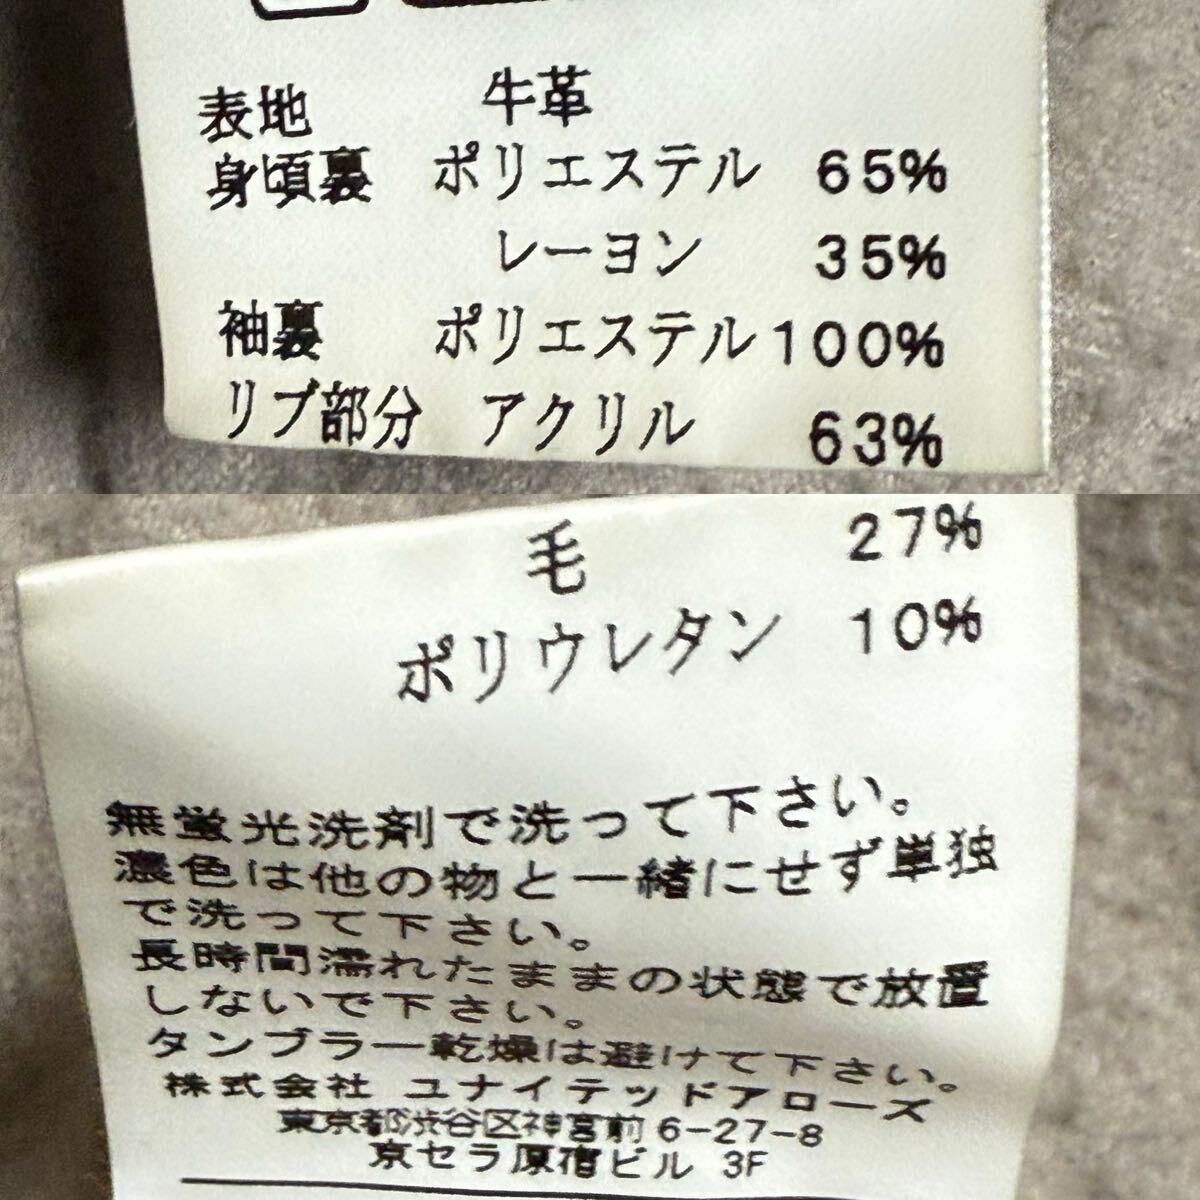 表地 牛革
身頃裏 ポリエステル 65%
レーヨン 35%
袖裏 ポリエステル 100%
リブ部分 アクリル 63%
毛 27%
ポリウレタン 10%
無蛍光洗剤で洗って下さい。
濃色は他の物と一緒にせず単独
で洗って下さい。
長時間濡れたままの状態で放置
しないで下さい。
タンブラー乾燥は避けて下さい。
株式会社 ユナイテッドアローズ
東京都渋谷区神宮前 6-27-8
京セラ原宿ビル 3F